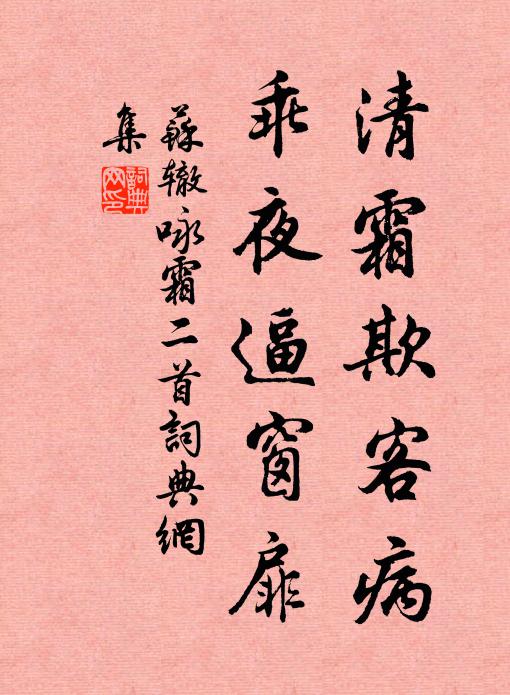 清霜欺客病
乖夜逼窗扉
蘇辙咏霜二首詞典網
集
詞典
网印